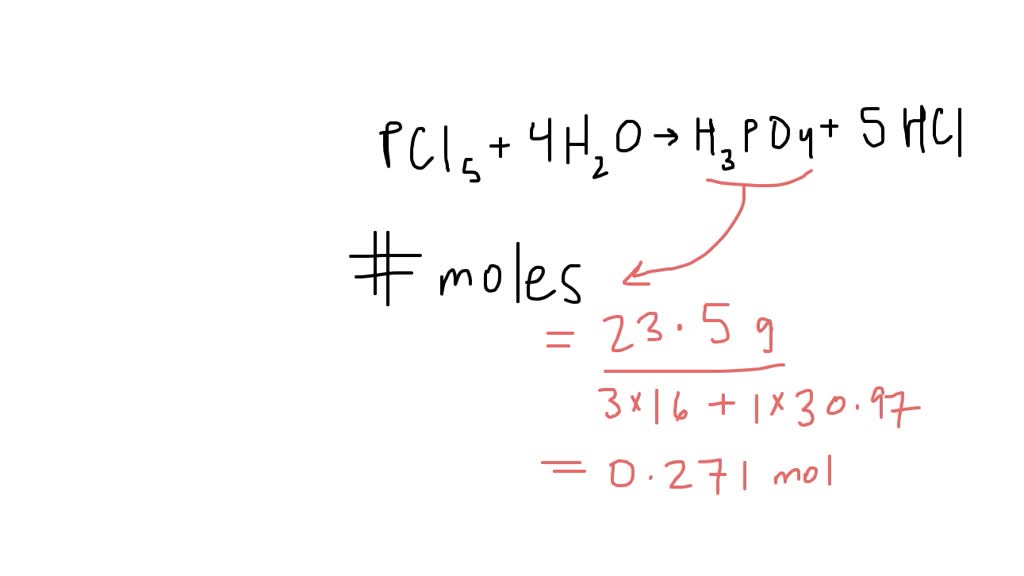 PCl₅ + 4H₂O → H₃PO₄ + 5HCl
# moles
= 23.5 g
3×16 + 1×30.97
= 0.271 mol